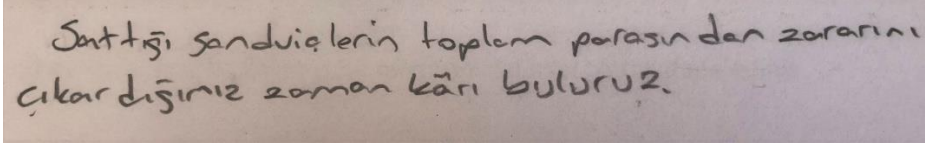 Sattığı sandviçlerin toplam parasından zararını
çıkardığımız zaman kârı buluruz.